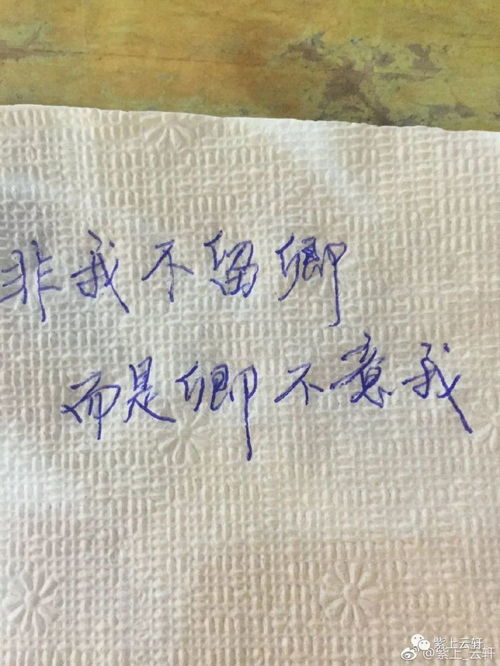 非我不留卿
而是卿不意我
紫上云轩
@紫上_云轩